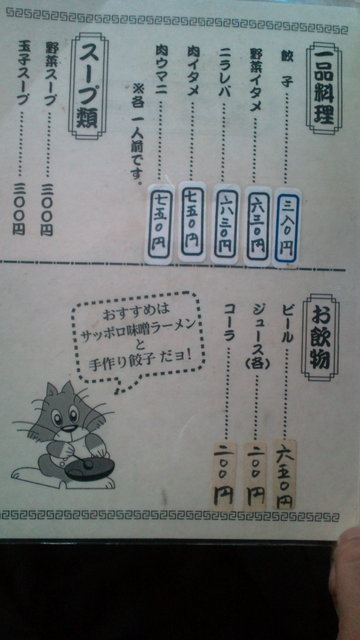 一品料理
餃子………三八〇円
野菜イタメ………六三〇円
ニラレバ………六三〇円
肉イタメ………七五〇円
肉ウマニ………七五〇円
※各一人前です。
スープ類
野菜スープ………三〇〇円
玉子スープ………三〇〇円
お飲物
ビール………六五〇円
ジュース(各)………二〇〇円
コーラ………二〇〇円
おすすめは
サッポロ味噌ラーメン
と
手作り餃子だョ!